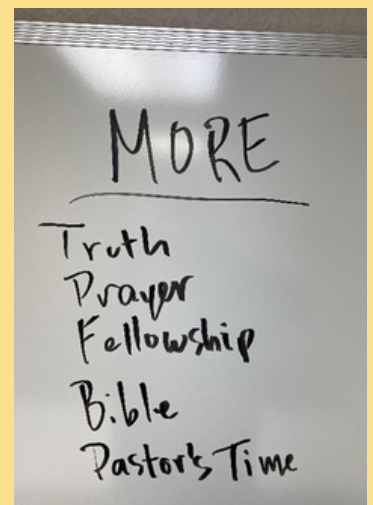 MORE
Truth
Prayer
Fellowship
Bible
Pastor's Time